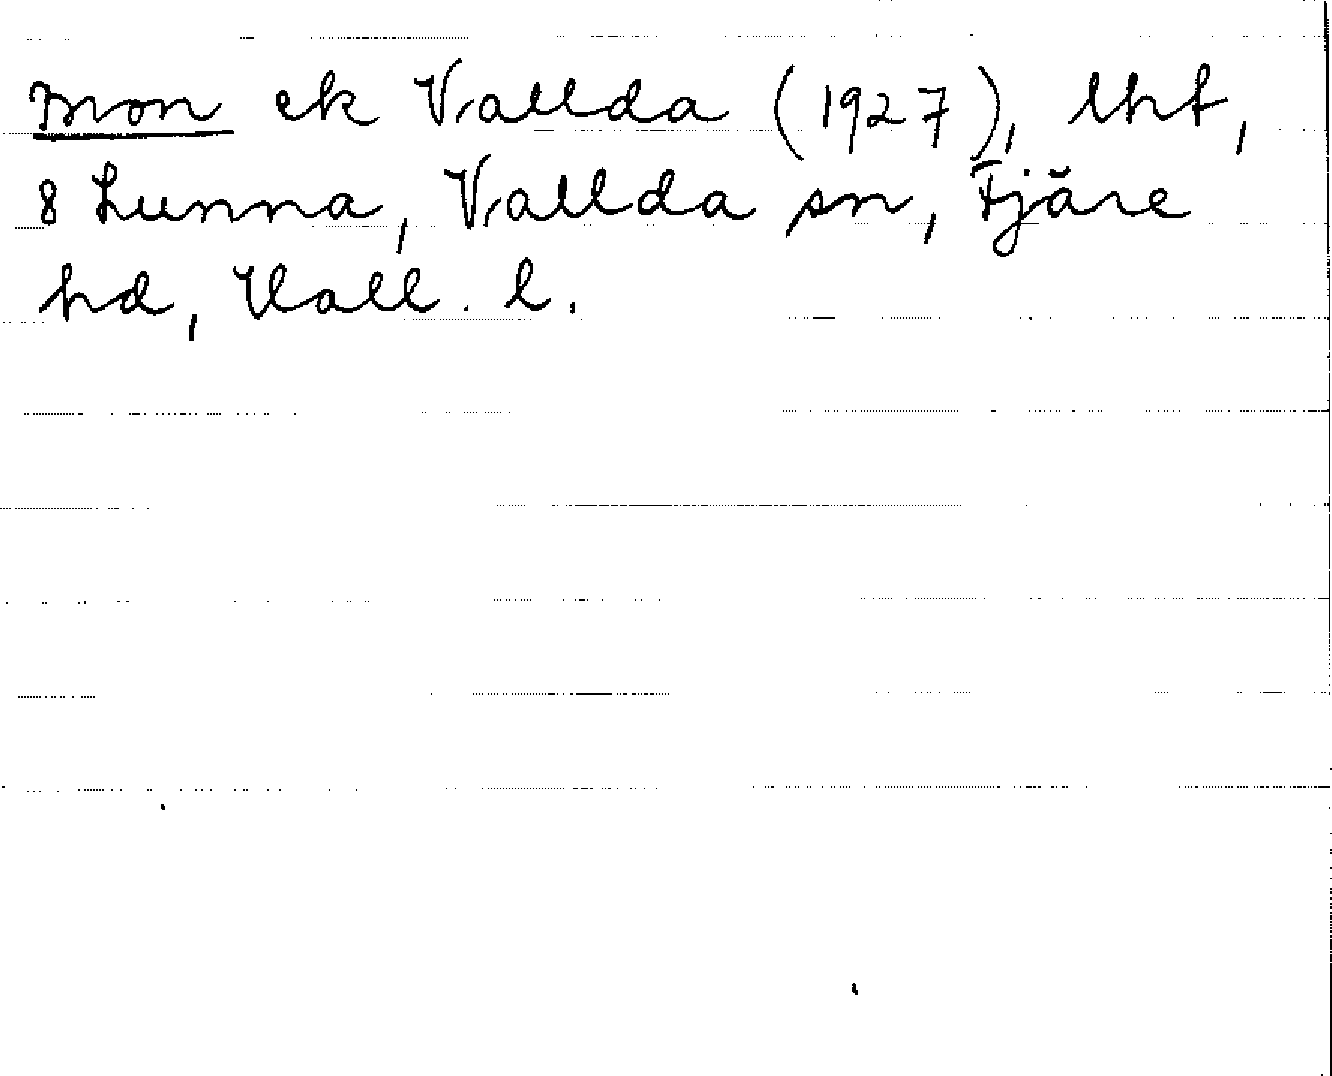 Bron ek Vallda (1927), lht,
8 Lunna, Vallda sn, Fjäre
hd, Hall. l.